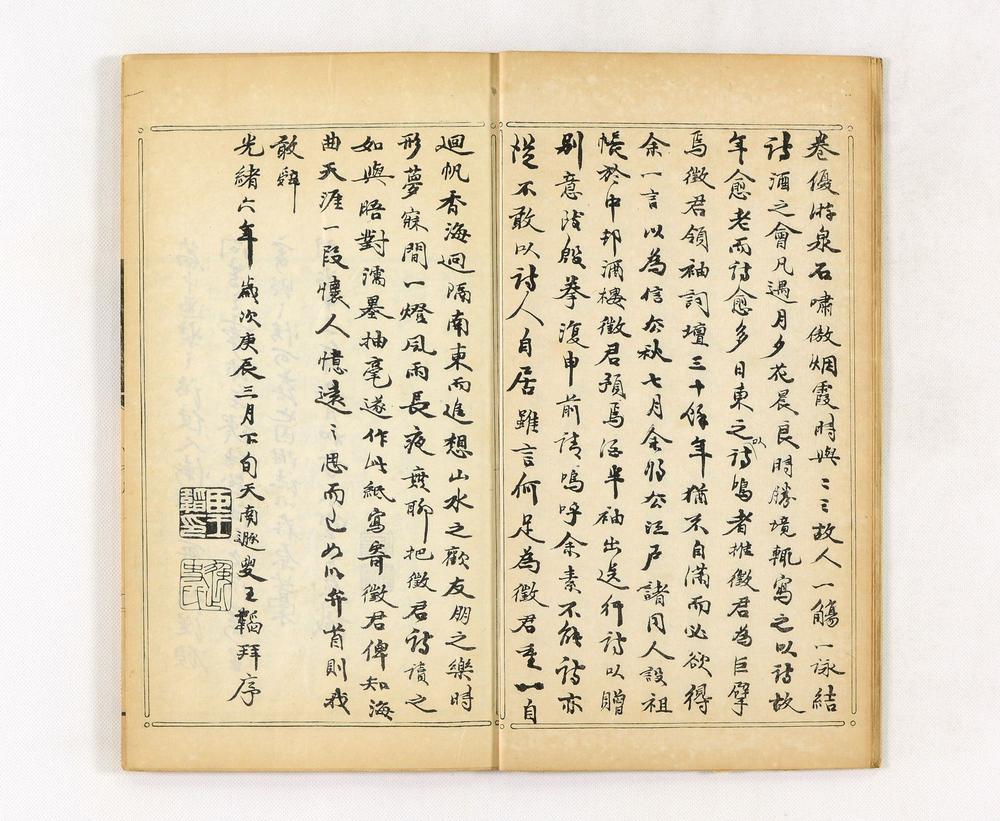 卷優游泉石嘯傲烟霞時與二三故人一觴一詠結
詩酒之會凡遇月夕花晨良時勝境輒寫之以詩故
年愈老而詩愈多日東之以詩鳴者推徵君為巨擘
焉徵君領袖詞壇三十餘年猶不自滿而必欲得
余一言以為信去秋七月余將去江戶諸同人設祖
帳於中邨酒樓徵君預焉酒半袖出送行詩以贈
別意致殷拳復申前請嗚呼余素不能詩亦
從不敢以詩人自居雖言何足為徵君重一自
迴帆香海迥隔南東而追想山水之歡友朋之樂時
形夢寐間一燈風雨長夜無聊把徵君詩讀之
如與晤對濡墨抽毫遂作此紙寫寄徵君俾知海
曲天涯一段懷人憶遠之思而已如以弁首則我
敢辭
光緒六年歲次庚辰三月下旬天南遯叟王韜拜序
王韜